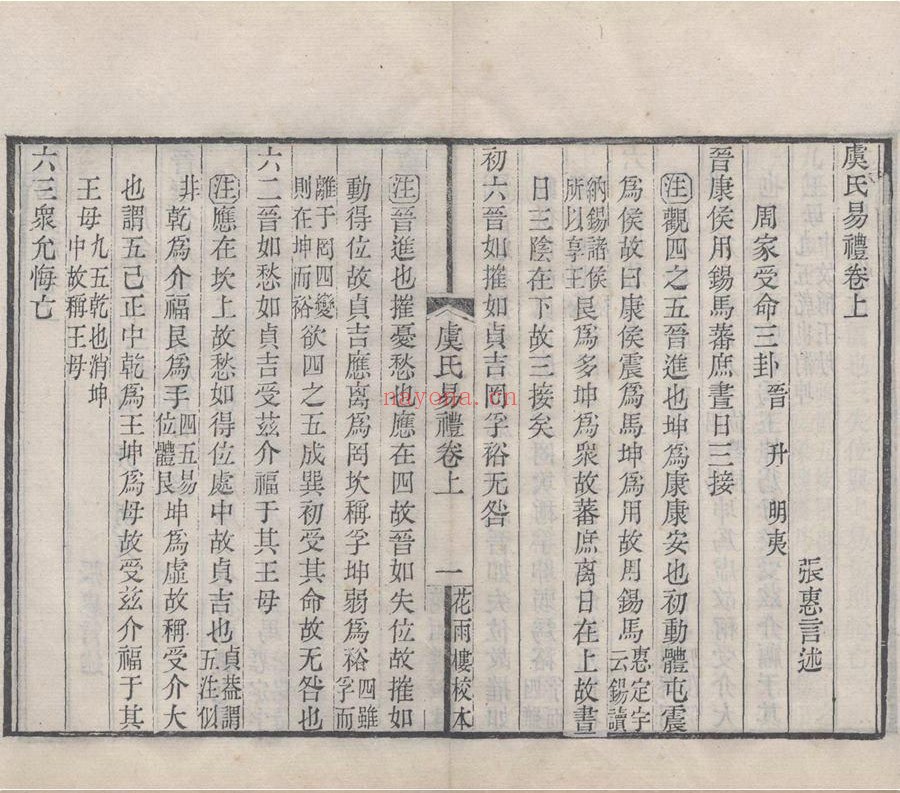 虞氏易禮卷上
張惠言述
周家受命三卦晉 升 明夷
晉康侯用錫馬蕃庶晝日三接
注觀四之五晉進也坤爲康康安也初動體屯震
爲侯故曰康侯震爲馬坤爲用故用錫馬惠定宇云錫讀
納錫諸侯所以享王艮爲多坤爲衆故蕃庶离日在上故晝
日三陰在下故三接矣
初六晉如摧如貞吉罔孚裕无咎
注晉進也摧憂愁也應在四故晉如失位故摧如
動得位故貞吉應离爲罔坎稱孚坤弱爲裕四雖孚而
離于罔四變則在坤而裕欲四之五成巽初受其命故无咎也
六二晉如愁如貞吉受茲介福于其王母
注應在坎上故愁如得位處中故貞吉也貞葢謂五注似
非乾爲介福艮爲手四五易位體艮坤爲虛故稱受介大
也謂五已正中乾爲王坤爲母故受茲介福于其
王母九五乾也消坤中故稱王母
六三衆允悔亡
虞氏易禮卷上
一
花雨樓校本
nayona.cn